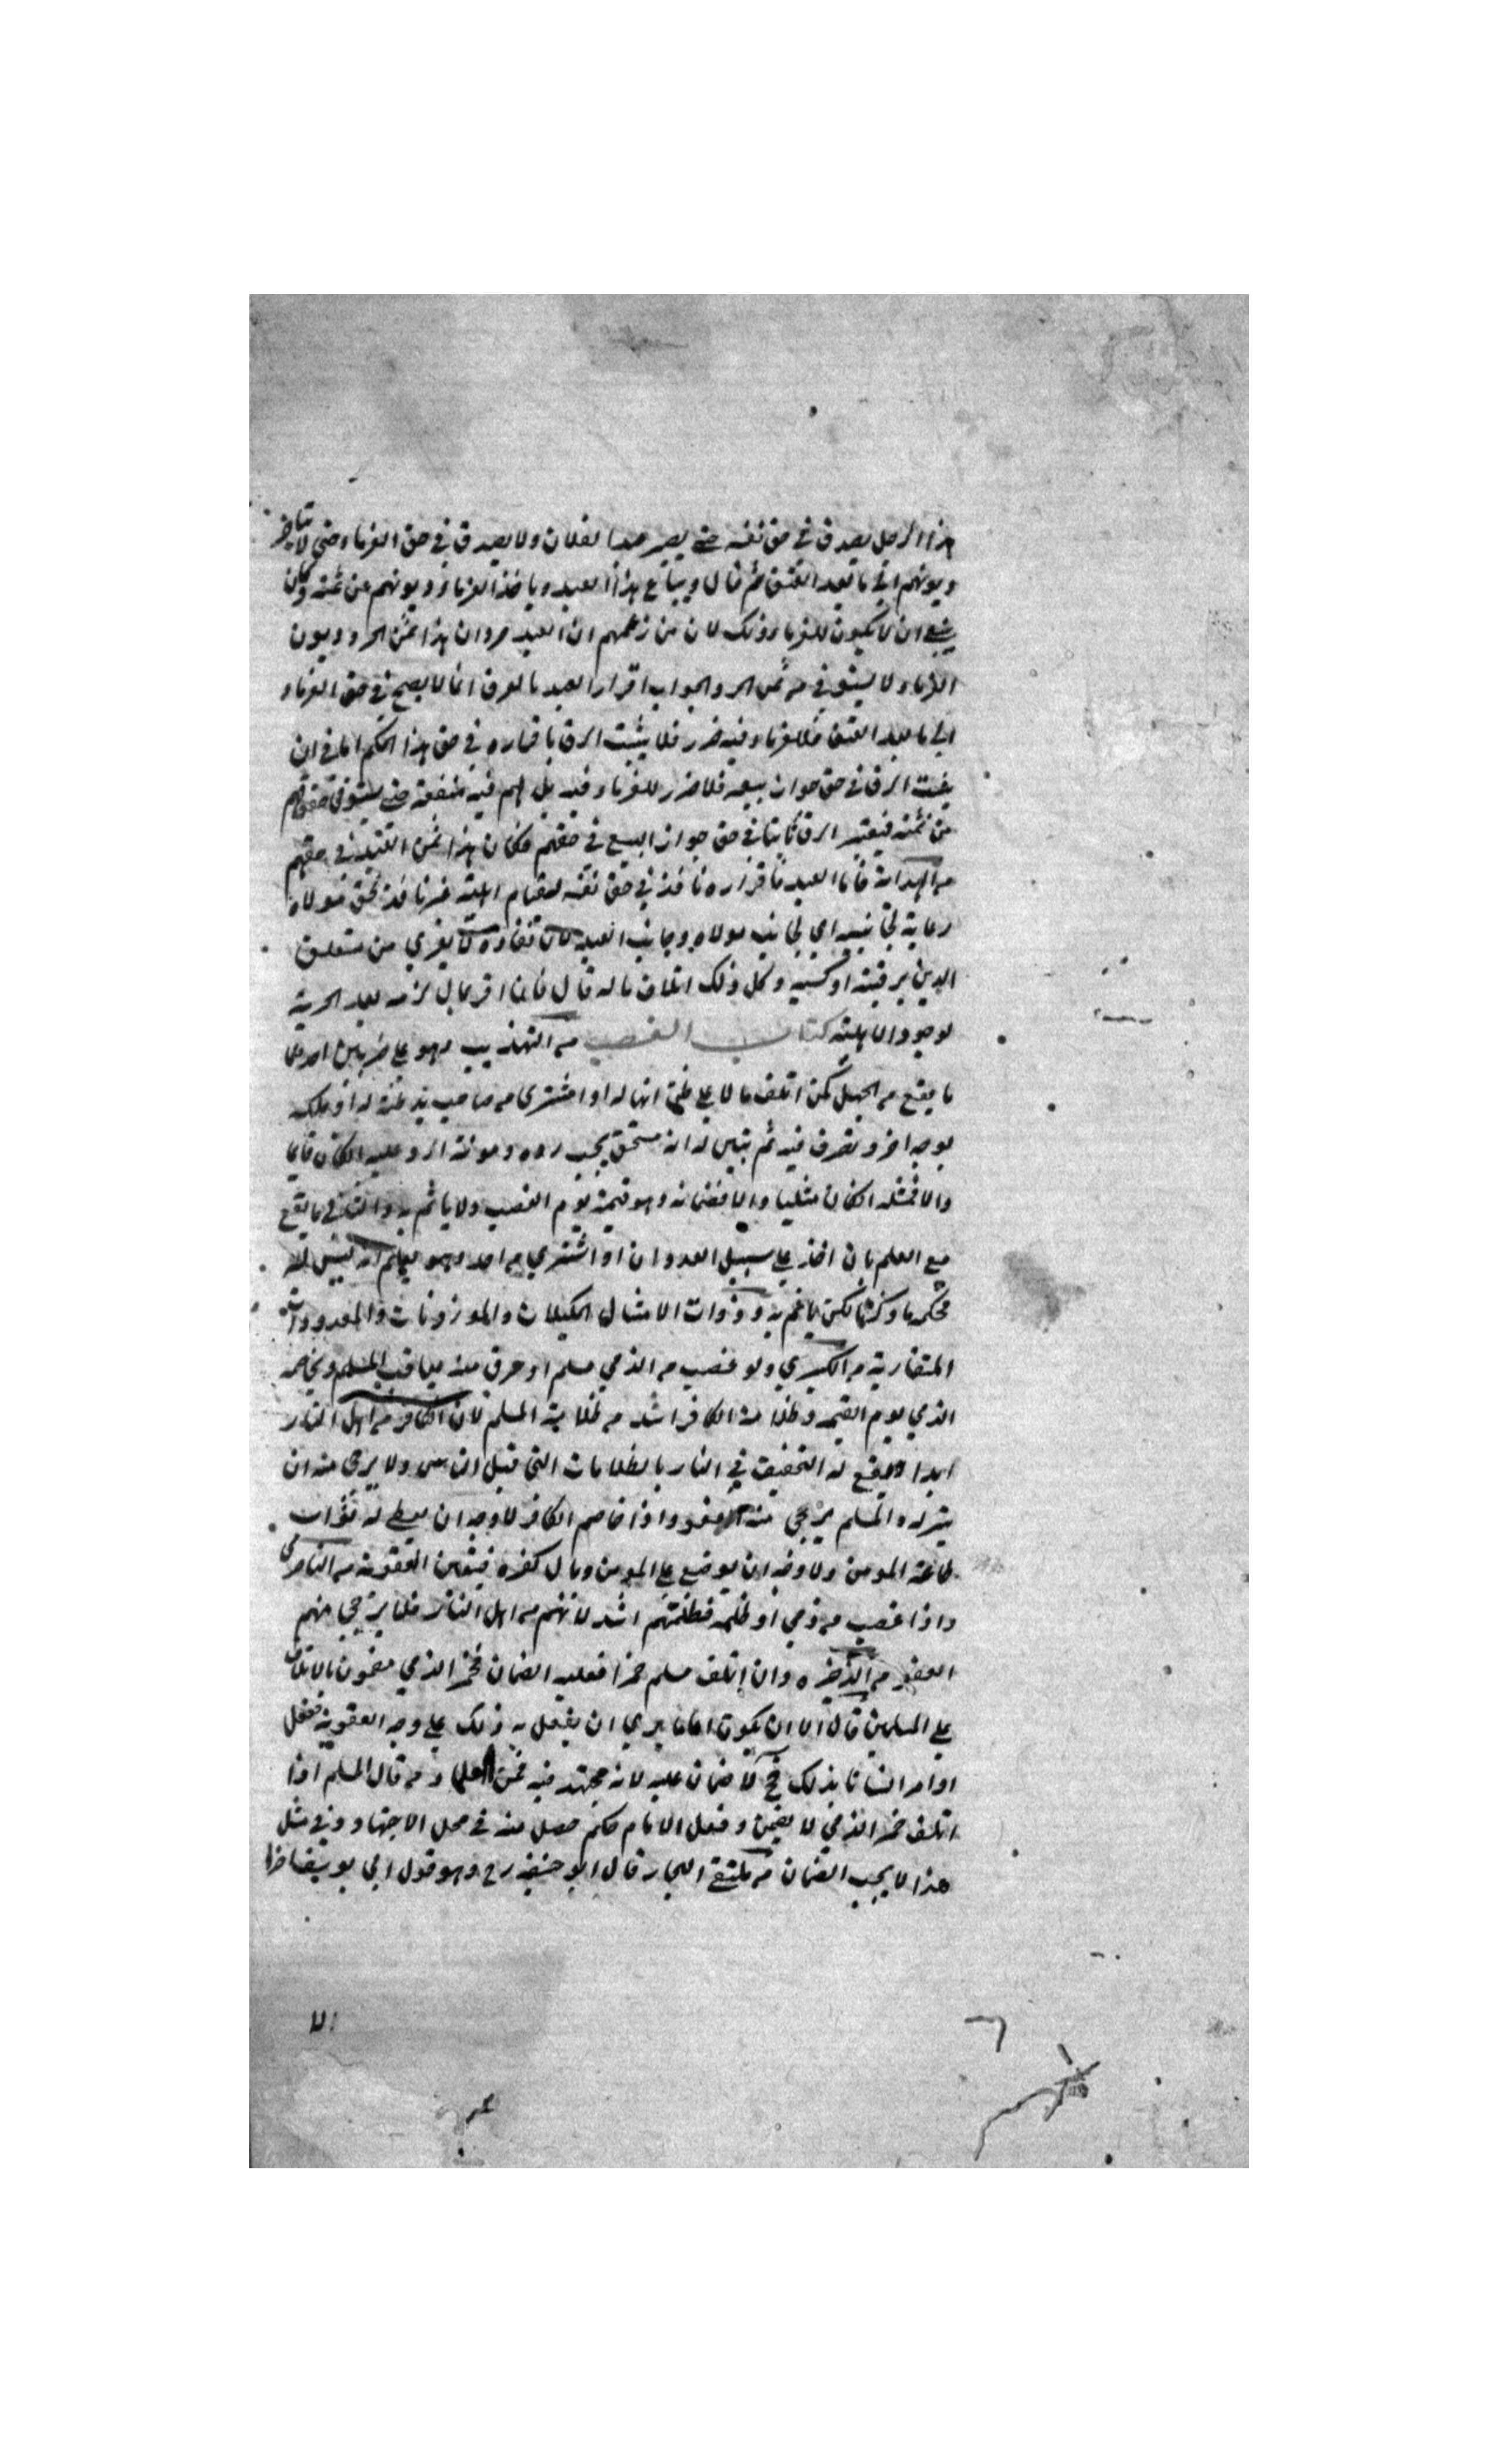 هذا الرجل يصدق في حق نفسه حتى يصير عبدا لفلان ولا يصدق في حق الغرماء حتى لا يتاخر
ديونهم الى ما بعد العتق ثم قال ويباع هذا العبد وياخذ الغرماء ديونهم من ثمنه وكان
ينبغي ان لا يكون للغرماء ذلك لان من زعمهم ان العبد حر وان هذا ثمن الحر وديون
الغرماء لا يستوفي من ثمن الحر والجواب اقرار العبد بالرق انما لا يصح في حق الغرماء
الى ما بعد العتق فللغرماء فيه ضرر فلا يثبت الرق باقراره في حق هذا الحكم اما في ان
يثبت الرق في حق جواز بيعه فلا ضرر للغرماء فيه بل لهم فيه منفعة حتى يستوفي حقوقهم
من ثمنه فيعتبر الرق ثابتا في حق جواز البيع في حقهم فكان هذا ثمن العبد في حقهم
من الهداية فاما العبد فاقراره نافذ في حق نفسه لقيام اهليته غير نافذ في حق مولاه
رعاية لجانبه اي لجانب مولاه وجانب العبد لان نفاذه لا يعري من متعلق
الدين برقبته او كسبه وكل ذلك اتلاف ماله قال فان اقر بمال لزمه بعد الحرية
لوجود الاهلية كتاب الغصب من التهذيب وهو على ضربين احدهما
ما يقع من الجهل كمن اتلف مالا على ظن انها له او اشترى من صاحب يد ظنه له او ملكه
بوجه اخر وتصرف فيه ثم تبين له انه مستحق يجب رده ومونة الرد عليه انكان قايما
والا فمثله انكان مثليا والا فضمانه وهو قيمته يوم الغصب ولا ياثم به والثاني ما يقع
مع العلم بان اخذ على سبيل العدوان او اشترى من احد وهو يعلم انه ليس له
فحكمه ما ذكرنا لكن ياثم به وذوات الامثال المكيلات والموزونات والمعدودات
المتقاربة من الكبرى ولو غصب من الذمي مسلم او سرق منه يعاقب المسلم ويخاصمه
الذمي يوم القيمة وظلامة الكافر اشد من ظلامة المسلم لان الكافر من اهل النار
ابدا ويقع له التخفيف في النار بالظلامات التي قبل الناس ولا يرجى منه ان
يتركه والمسلم يرجى منه العفو واذا خاصم الكافر لا وجه ان يعطى له ثواب
طاعة المومن ولا وجه ان يوضع على المومن وبال كفره فيتعين العقوبة من الناصري
واذا غصب من ذمي او ظلمه فظلمتهم اشد لانهم من اهل النار فلا يرجى منهم
العفو من الذخيرة وان اتلف مسلم خمرا فعليه الضمان فخمر الذمي مضمون بالاتلاف
على المسلمين قال الا ان يكون اماما يرى ان يفعل به ذلك على وجه العقوبة ففعل
او امر انسانا بذلك فح لا ضمان عليه لانه مجتهد فيه فمن العلماء من قال المسلم اذا
اتلف خمر الذمي لا يضمن وفعل الامام حكم حصل منه في محل الاجتهاد وفي مثل
هذا لا يجب الضمان من ملتقى البحار قال ابو حنيفة رح وهو قول ابي يوسف اخرا
الا